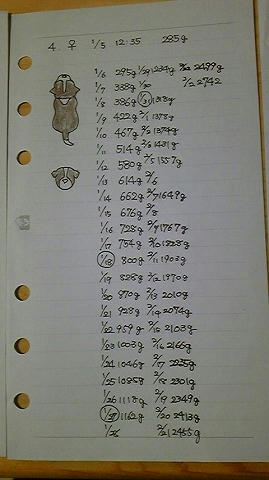 4. ♀ 1/5 12:35 235g
1/6 295g 1/29 1234g 2/22 2499g
1/7 338g 1/30 2/2 2742
1/8 386g 1/31 1318g
1/9 422g 2/1 1378g
1/10 467g 2/2 1374g
1/11 514g 2/3 1431g
1/12 580g 2/5 1557g
1/13 614g 2/6
1/14 662g 2/7 1649g
1/15 676g 2/8
1/16 728g 2/9 1767g
1/17 754g 2/10 1828g
1/18 800g 2/11 1903g
1/19 828g 2/12 1970g
1/20 870g 2/13 2010g
1/21 928g 2/14 2074g
1/22 959g 2/15 2103g
1/23 1003g 2/16 2166g
1/24 1046g 2/17 2235g
1/25 1085g 2/18 2301g
1/26 1118g 2/19 2349g
1/27 1162g 2/20 2413g
1/28 2/21 2455g